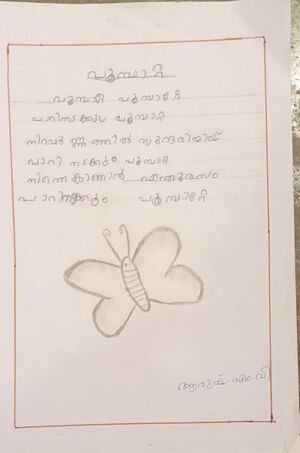 പൂമ്പാറ്റ
പൂമ്പാറ്റ പൂമ്പാറ്റേ
പാറിനടക്കും പൂമ്പാറ്റ
നിറവർണ്ണത്തിൽ സുന്ദരിയായ്
പാറി നടക്കും പൂമ്പാറ്റ
നിന്നെ കാണാൻ എന്തുരസം
പാറിനടക്കും പൂമ്പാറ്റേ
ആരുഷ് എം.വി